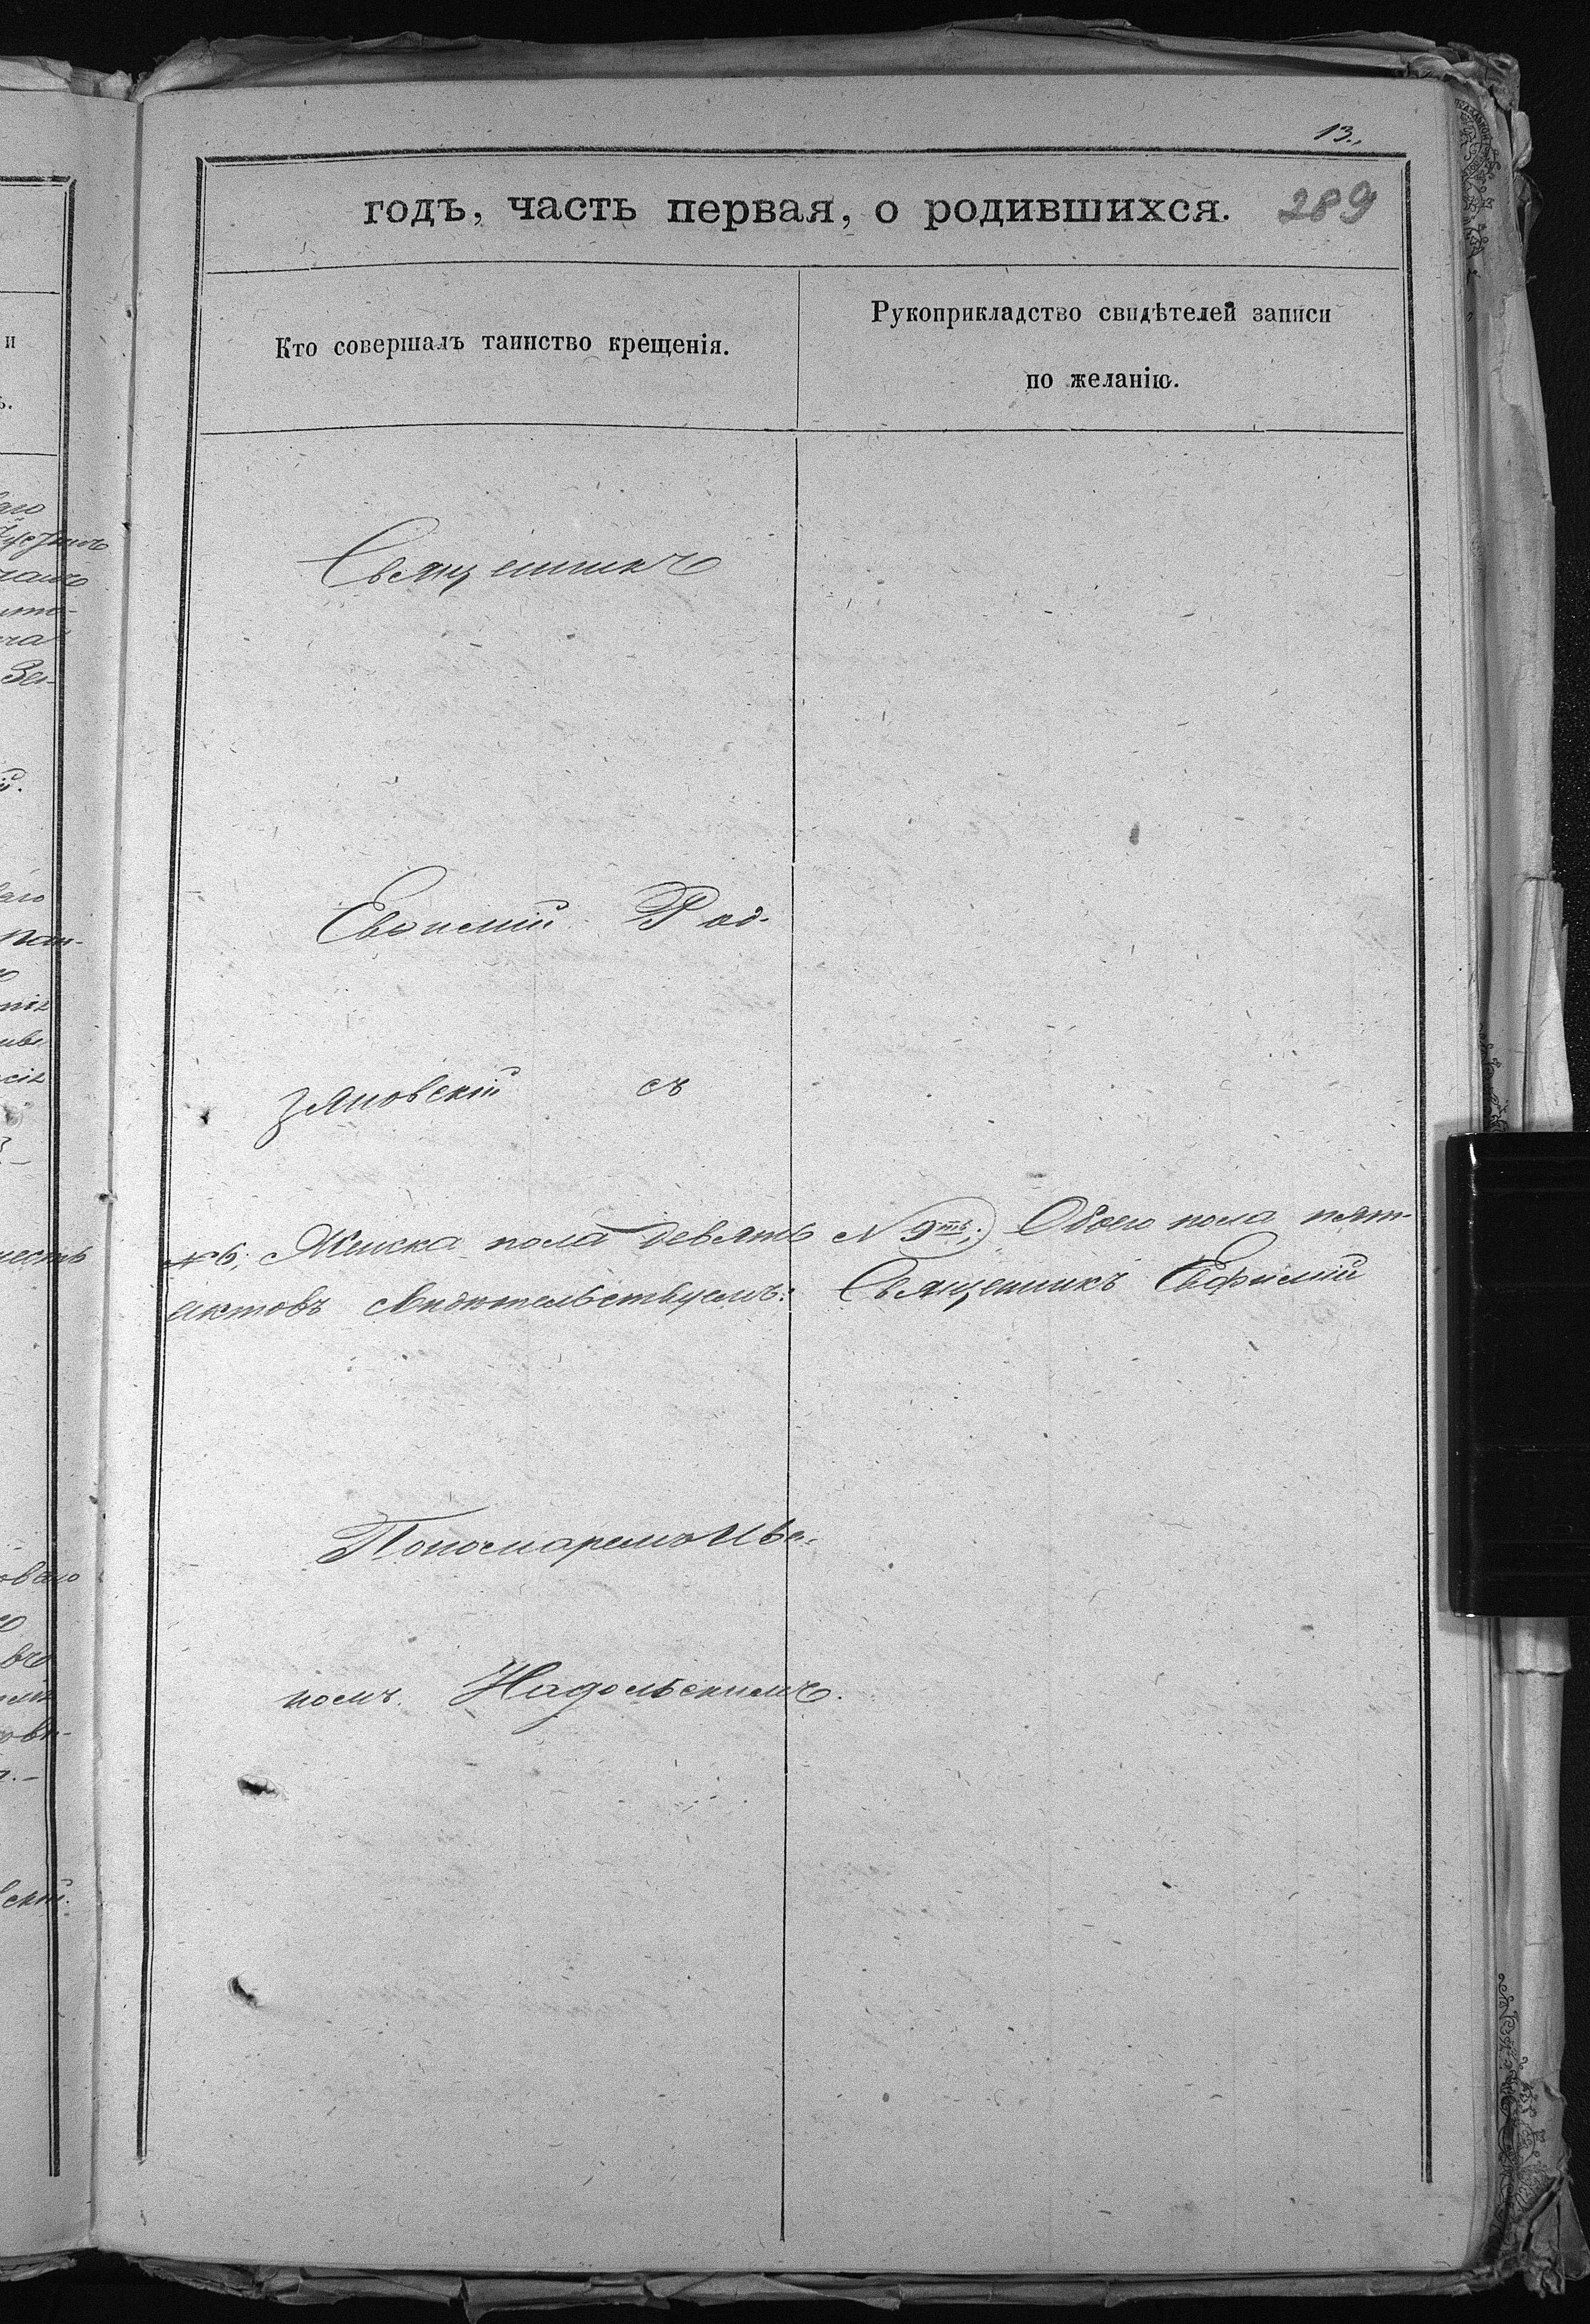 13.
годъ, часть первая, о родившихся. 289
Кто совершалъ таинство крещенія.
Рукоприкладство свидѣтелей записи
по желанію.
Священникъ
Евѳимій Рад-
зяновскій съ
№ 6; Женска пола девять № 9ть;) Обоего пола пят-
актовъ свидѣтельствуемъ: Священникъ Евфимій
Пономаремъ Ива-
номъ Надольскимъ.